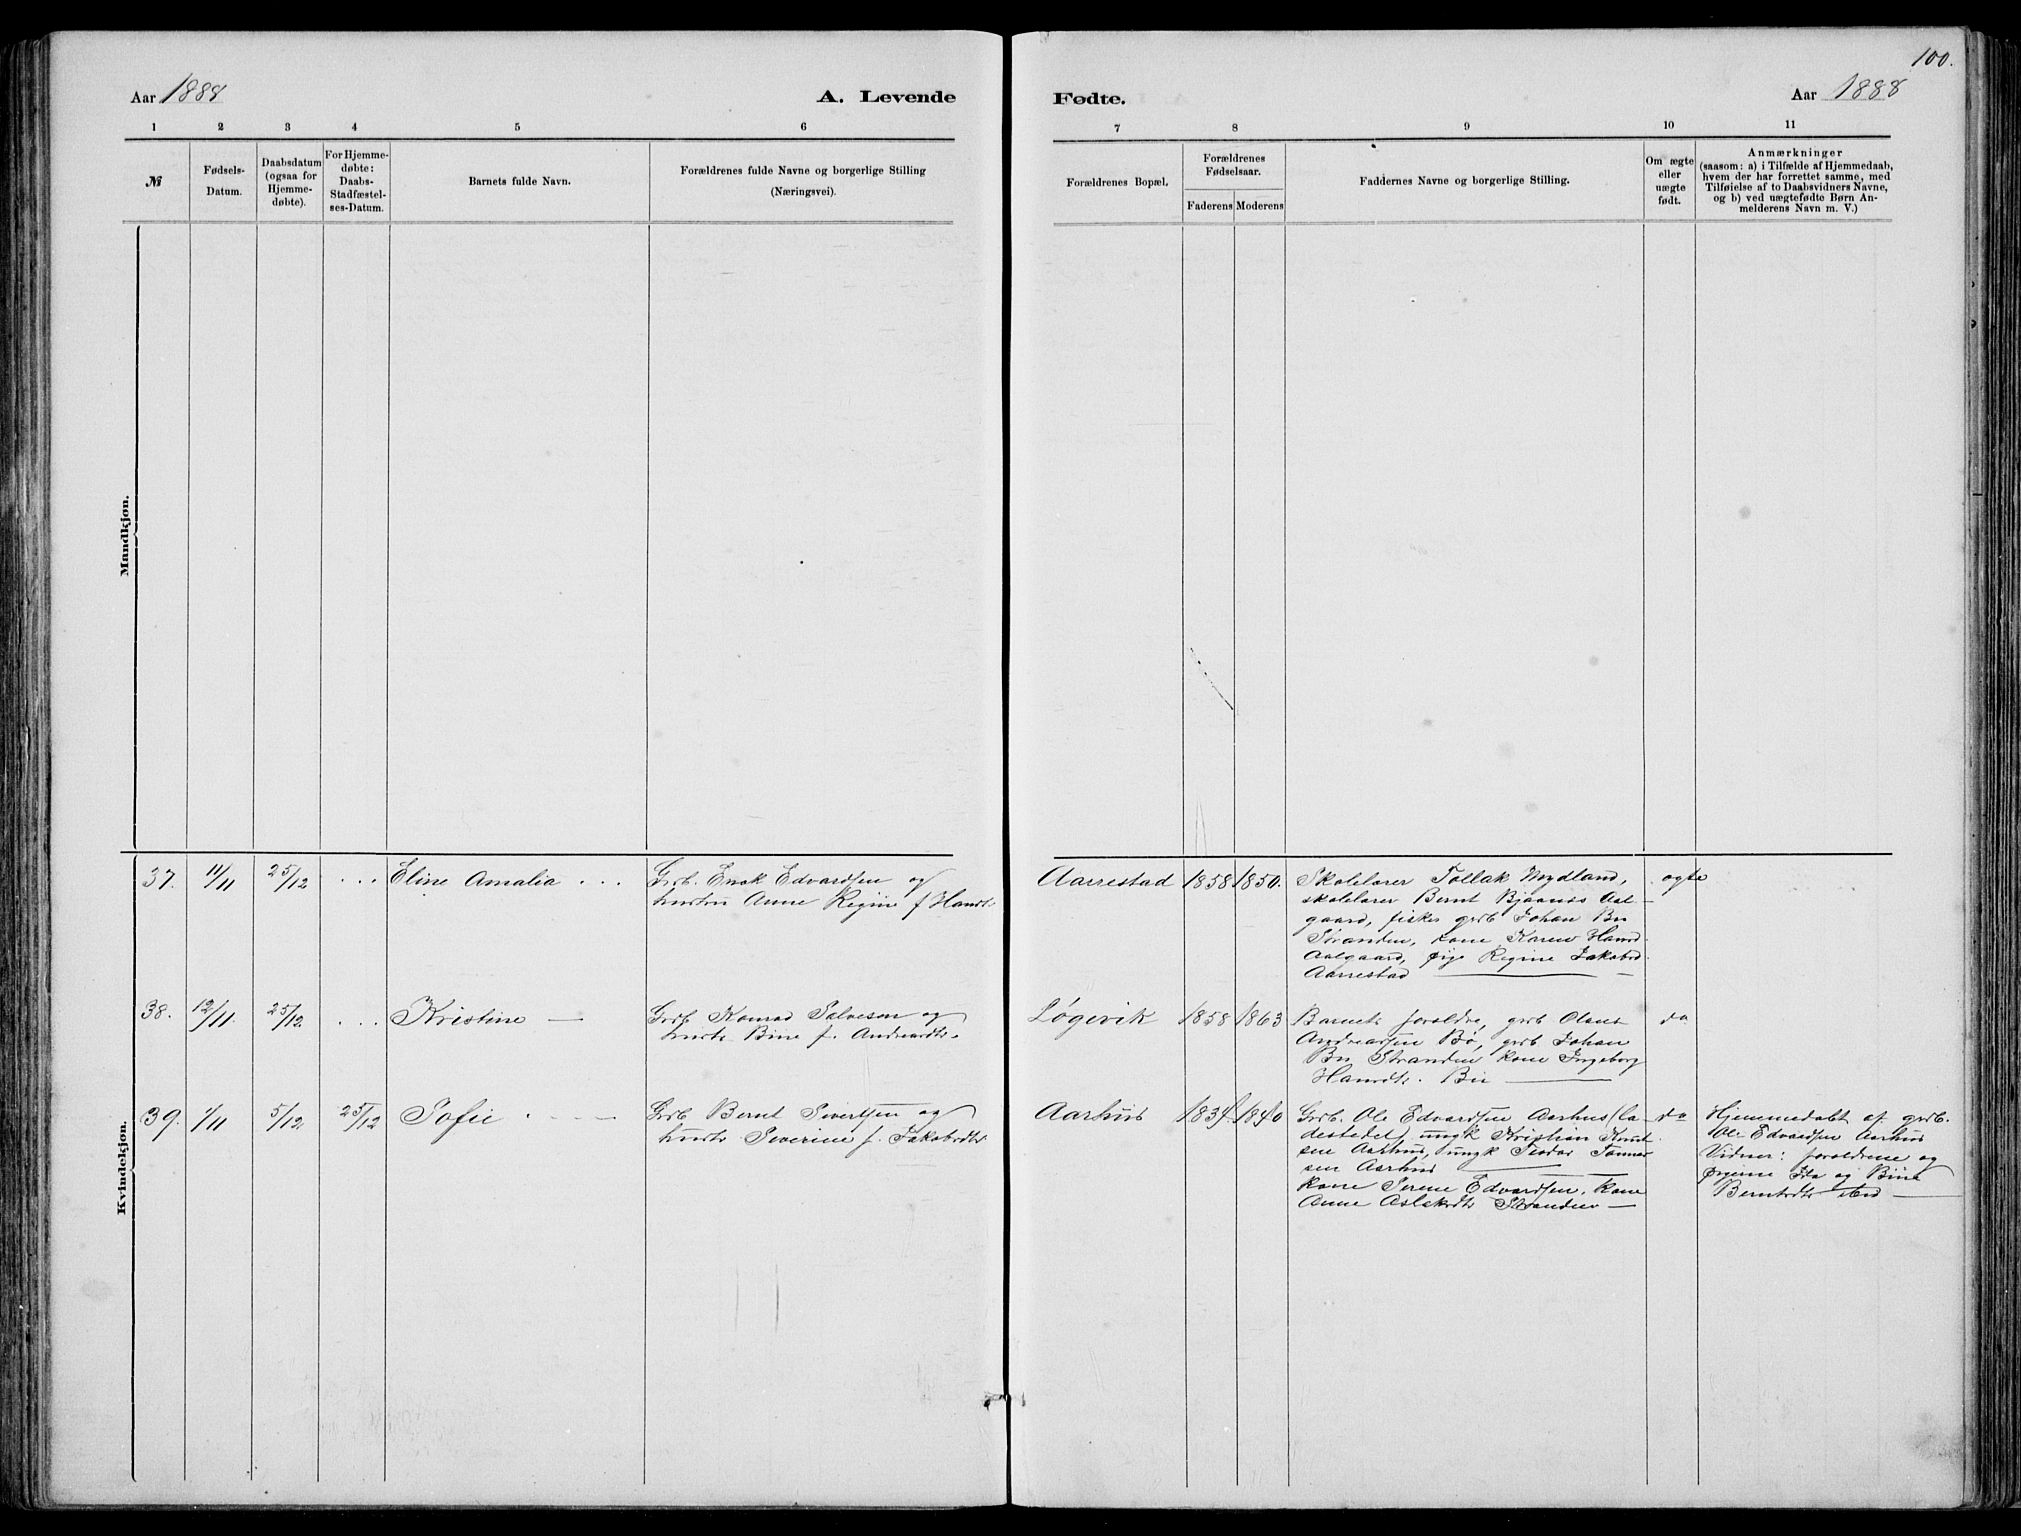 100.
Aar 1888
A. Levende
Fødte.
Aar 1888
1 2 3 4 5 6
7 8 9 10 11
№
Fødsels-
Datum.
Daabsdatum
(ogsaa for
Hjemme-
døbte).
For Hjemme-
døbte:
Daabs-
Stadfæstel-
ses-Datum.
Barnets fulde Navn.
Forældrenes fulde Navne og borgerlige Stilling
(Næringsvei).
Forældrenes Bopæl,
Forældrenes
Fødselsaar.
Faderens Moderens
Faddernes Navne og borgerlige Stilling.
Om ægte
eller
uægte
født.
Anmærkninger
(saasom: a) i Tilfælde af Hjemmedaab,
hvem der har forrettet samme, med
Tilføielse af to Daabsvidners Navne,
og b) ved uægtefødte Børn An-
melderens Navn m. V.)
Mandkjøn.
Kvindekjøn.
37. 11/11 25/12 . . . Eline Amalia . . .
Grdb. Enok Edvardsen og
hustru Anne Regine f Hansdt.
Aarrestad 1858 1850.
Skolelærer Tollak Mydland,
skolelærer Bernt Bjaanes Aal-
gaard, fisker grdb Johan Bu
Stranden, kone Karen Hansd.
Aalgaard, pige Regine Jakobsd.
Aarrestad
ægte
38. 12/11. 25/12. . . . Kristine —
Grdb Konrad Salvesen og
hustr. Bine f. Andreasdtr.
Løgevik 1858 1863
Barnets forældre, grdb Olaus
Andreassen Bø, grdb Johan
Bu Stranden kone Ingeborg
Hansdtr. Bu
do
39. 1/11 5/12 25/12 Sofie
Grdb Bernt Sivertsen og
hustr. Severine f. Jakobsdtr
Aarhus 1834. 1840
Grdb. Ole Edvardsen Aarhus (la-
destedet) ungk Kristian Knut-
sen Aarhus, ungk Teodor Tønnes-
sen Aarhus
kone Serene Edvardsen, kone
Anne Aslaksdtr Stranden
do
Hjemmedøbt af grdb.
Ole Edvardsen Aarhus
Vidner: forældrene og
pigerne Ida og Bine
Berntsdtr sted